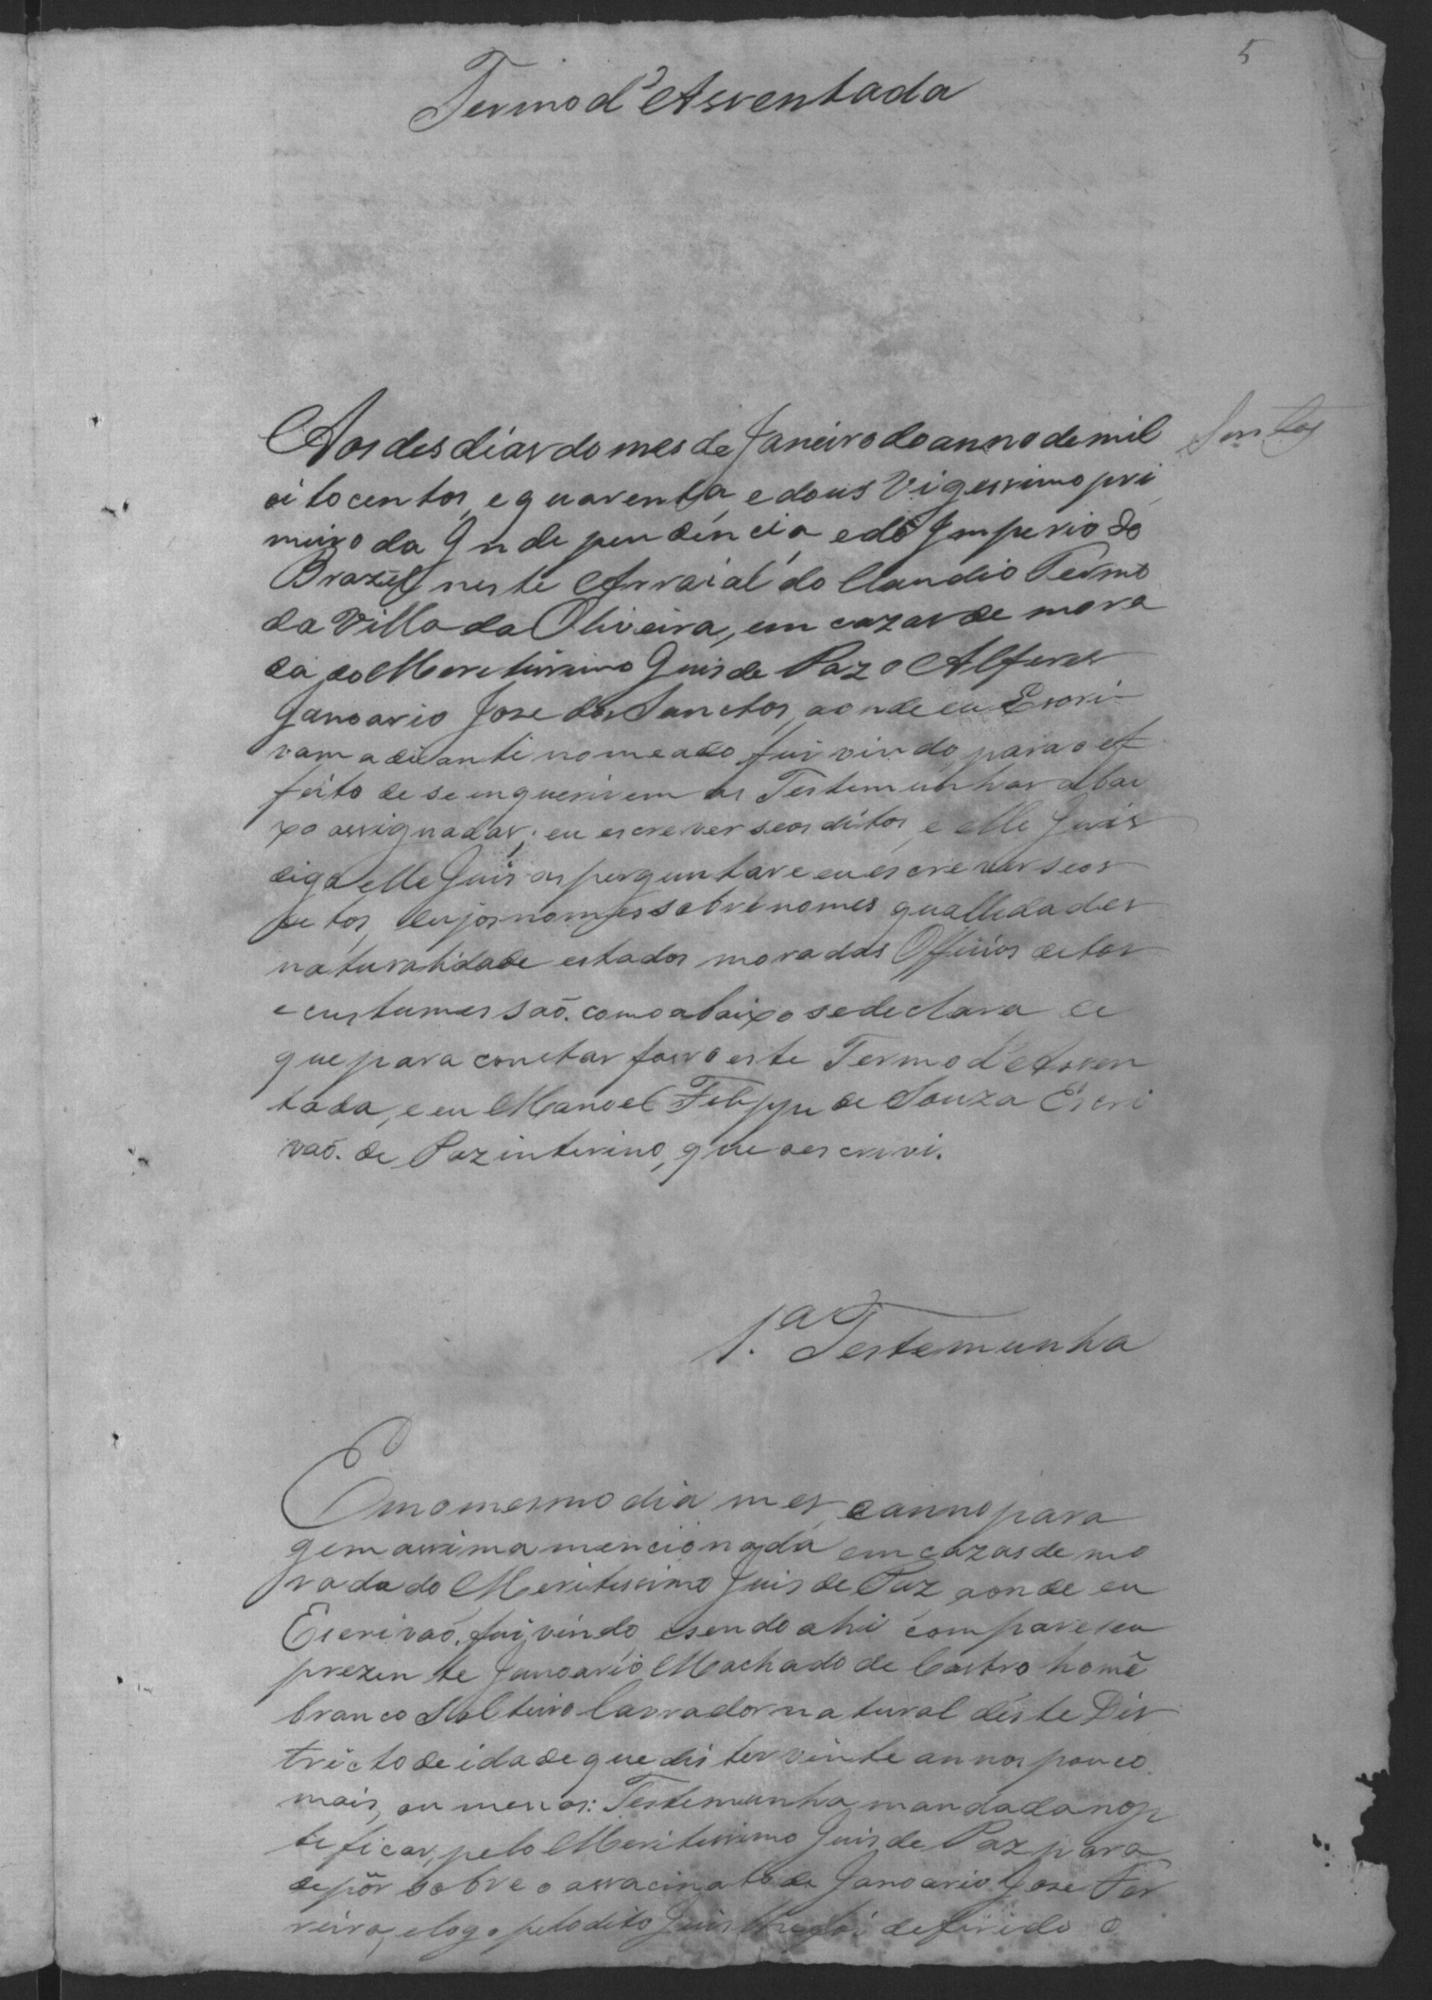 5
Termo d'Asventada
Aos des dias do mes de Janeiro do anno de mil
Santos
oitocentos, e quarenta, e dous Vigessimo pri
meiro da Independencia, e do Imperio do
Brazil neste Arraial do Claudio Termo
da Villa da Oliveira, em cazas de mora
da do Meretissimo Juis de Paz o Alferes
Januario Jose dos Sanctos, aonde eu Escri-
vam adiante nomeado fui vindo para o ef
feito de se inquerirem as Testemunhas abai
xo assignadas; eu escrever seos ditos, e elle Juis
digo elle Juis as perguntar e eu escrever seos
ditos, cujos nomes sobre nomes quallidades
naturalidade estados moradas Officios ditos
e custumes são. como abaixo se declara de
que para constar fasso este Termo d'Assen
tada, e eu Manoel Felippe de Souza Escri
vaõ. de Paz interino, que o escrevi.
1.a Testemunha
E no mesmo dia mes, e anno para
gem assima mencionada em cazas de mo
rada do Meritissimo Juis de Paz aonde eu
Escrivaõ. fui vindo, e sendo ahi compareseu
prezente Januario Machado de Castro homẽ
branco Solteiro lavrador natural deste Dis
tricto de idade que dis ter vinte annos pouco
mais, ou menos: Testemunha mandada no
teficar, pelo Meritissimo Juis de Paz para
depôr sobre o assacinato de Januario Jose Fer
reira, e logo pelo dito Juis lhe foi deferido o